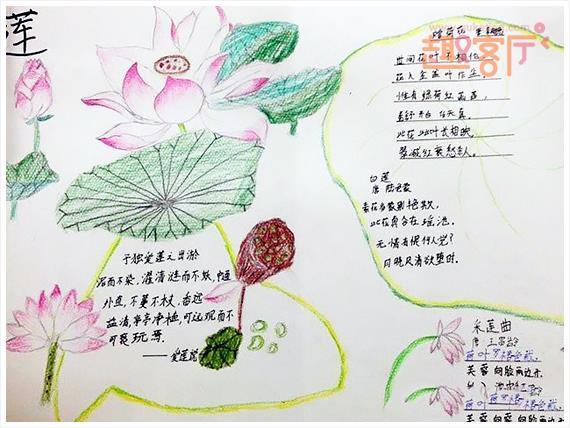 莲
趣客厅
赠荷花
世间花叶不相伦,
花入金盆叶作尘
惟有绿荷红菡萏,
卷舒开合任天真
此花此叶长相映,
翠减红衰愁杀人。
白莲
唐 陆龟蒙
素花多蒙别艳欺,
此花真合在瑶池。
无情有恨何人觉?
月晓风清欲堕时.
予独爱莲之出淤
泥而不染,濯清涟而不妖,中通
外直,不蔓不枝,香远
益清,亭亭净植,可远观而不
可亵玩焉.
——爱莲说
采莲曲
唐 王昌龄
荷叶罗裙色裁,
芙蓉向脸两边开
荷叶罗裙色裁
芙蓉向脸两边开